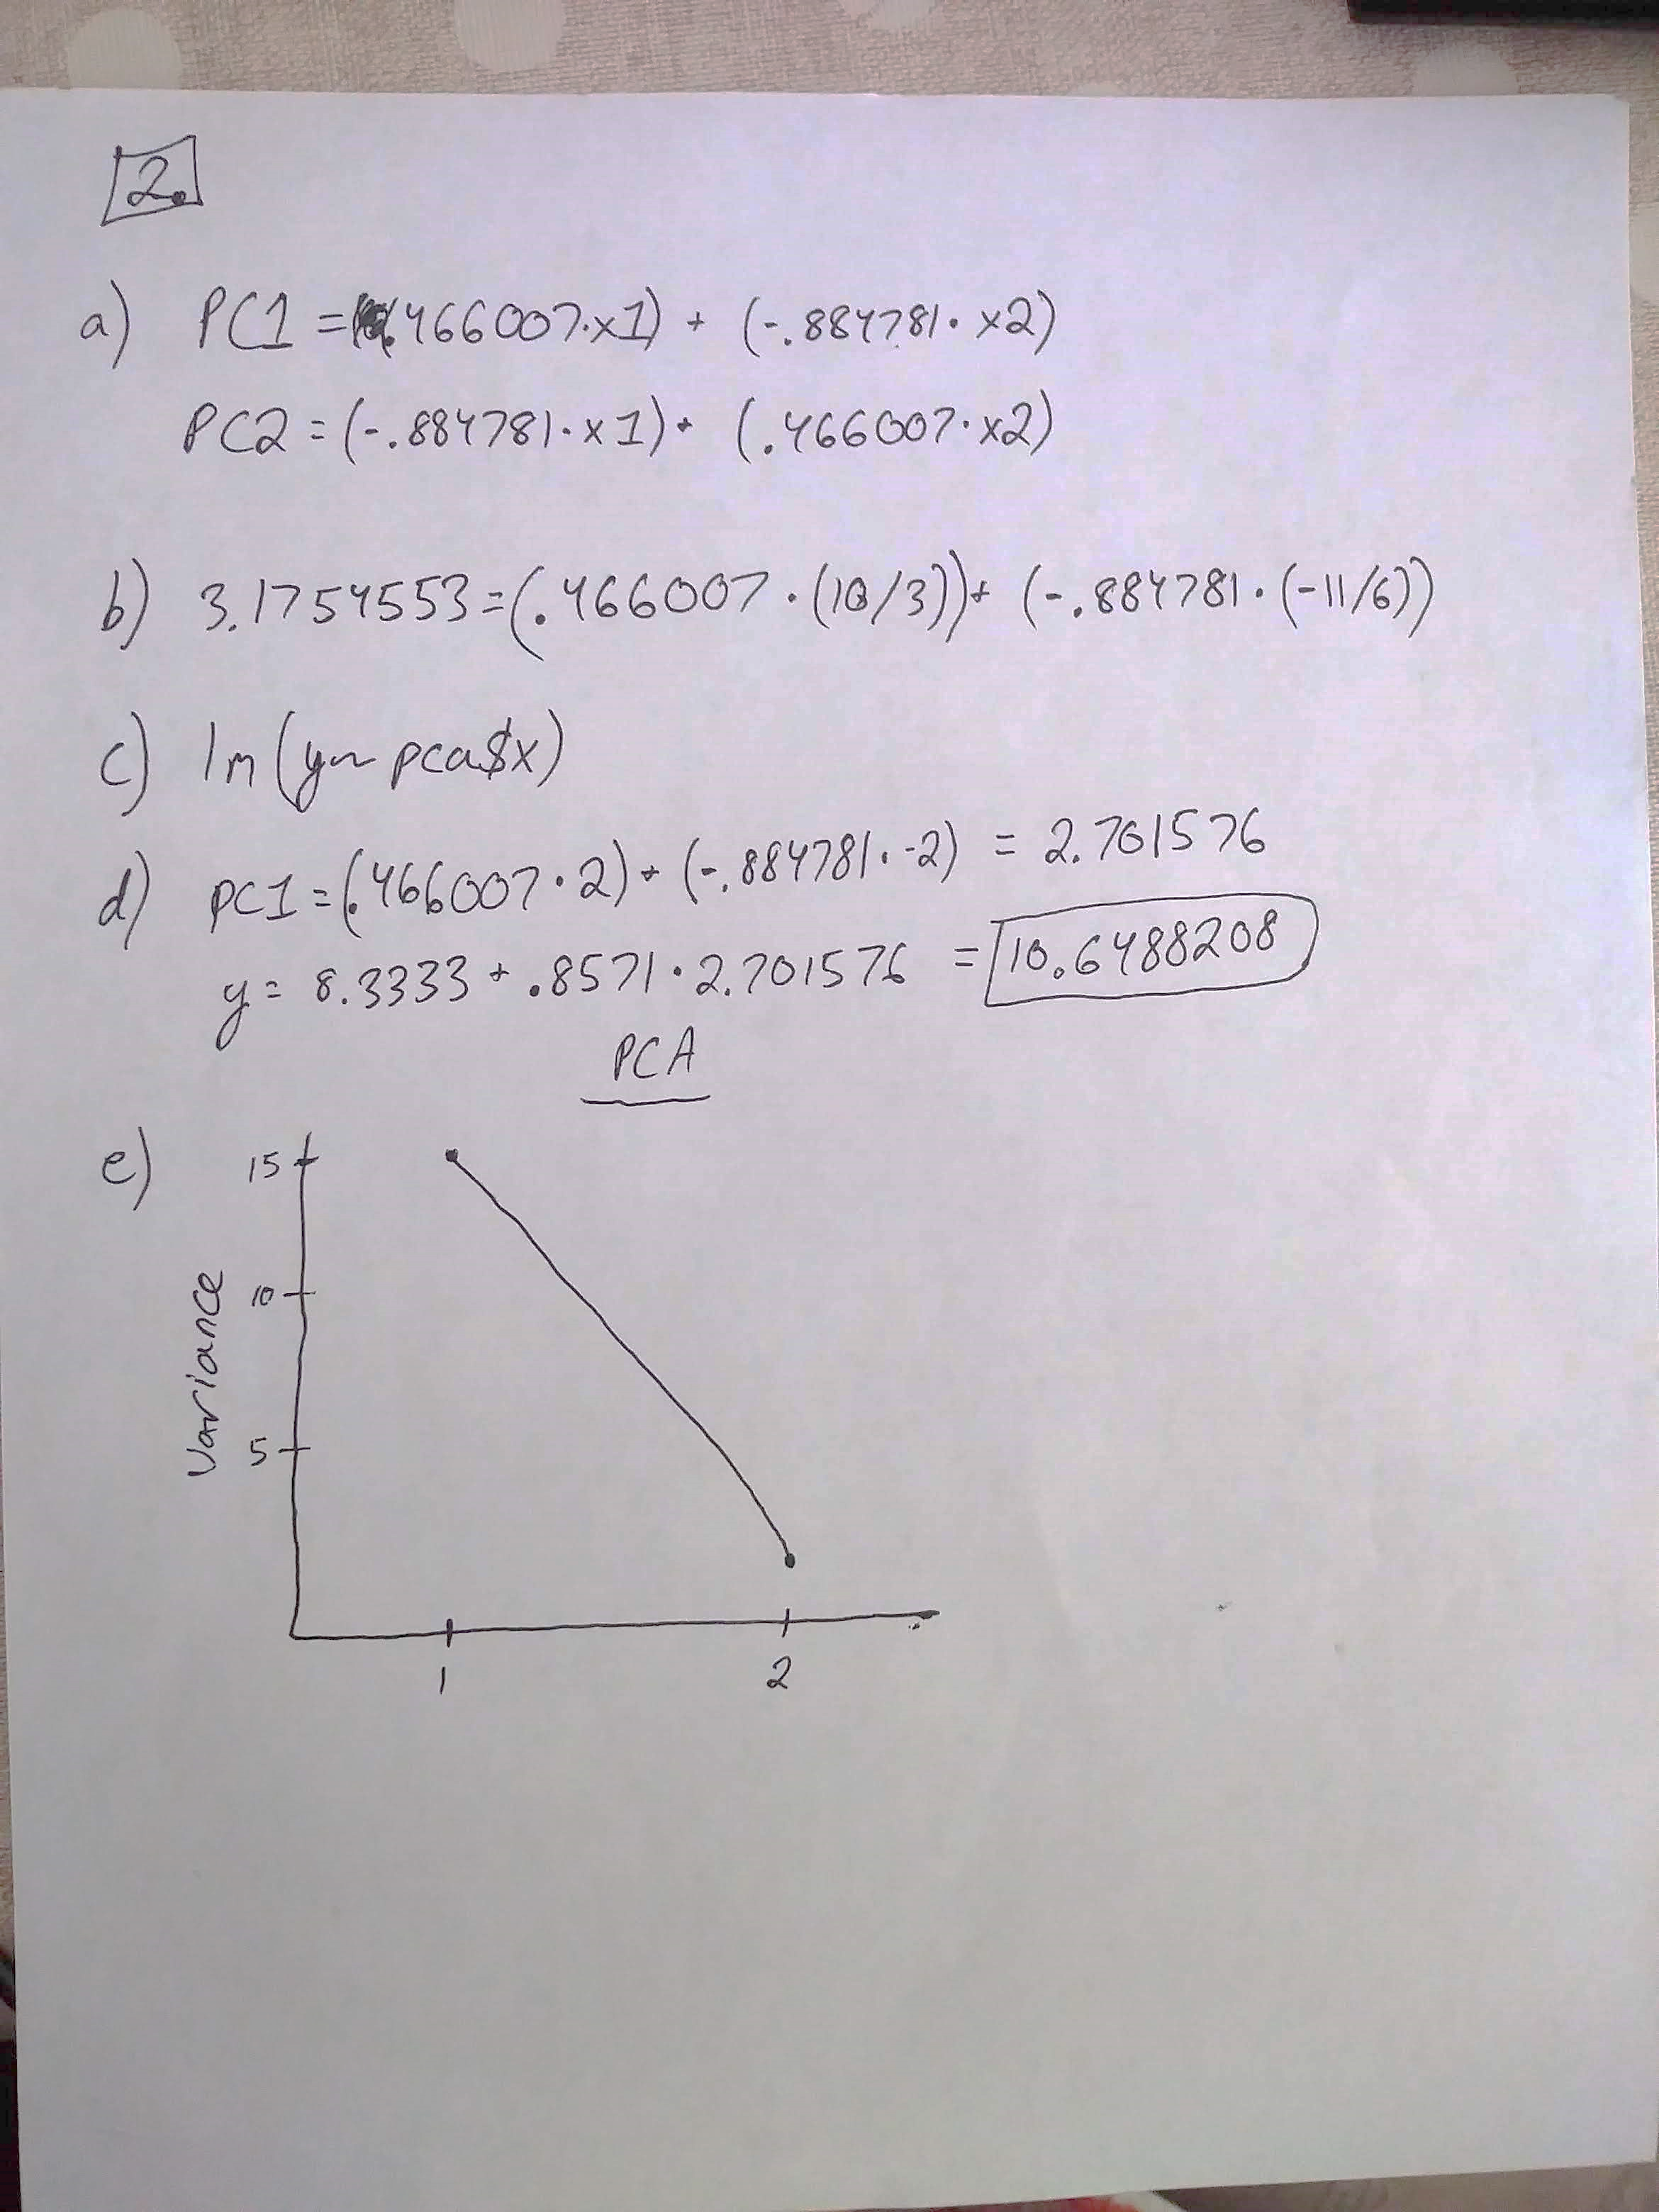 2.
a) PC1 = (.466007·x1) + (-.884781·x2)
PC2 = (-.884781·x1) + (.466007·x2)
b) 3.1754553 = (.466007·(10/3)) + (-.884781·(-11/6))
c) lm(y~pca$x)
d) PC1 = (.466007·2) + (-.884781·-2) = 2.701576
y = 8.3333 + .8571·2.701576 = 10.6488208
PCA
e)
15
10
5
Variance
1 2